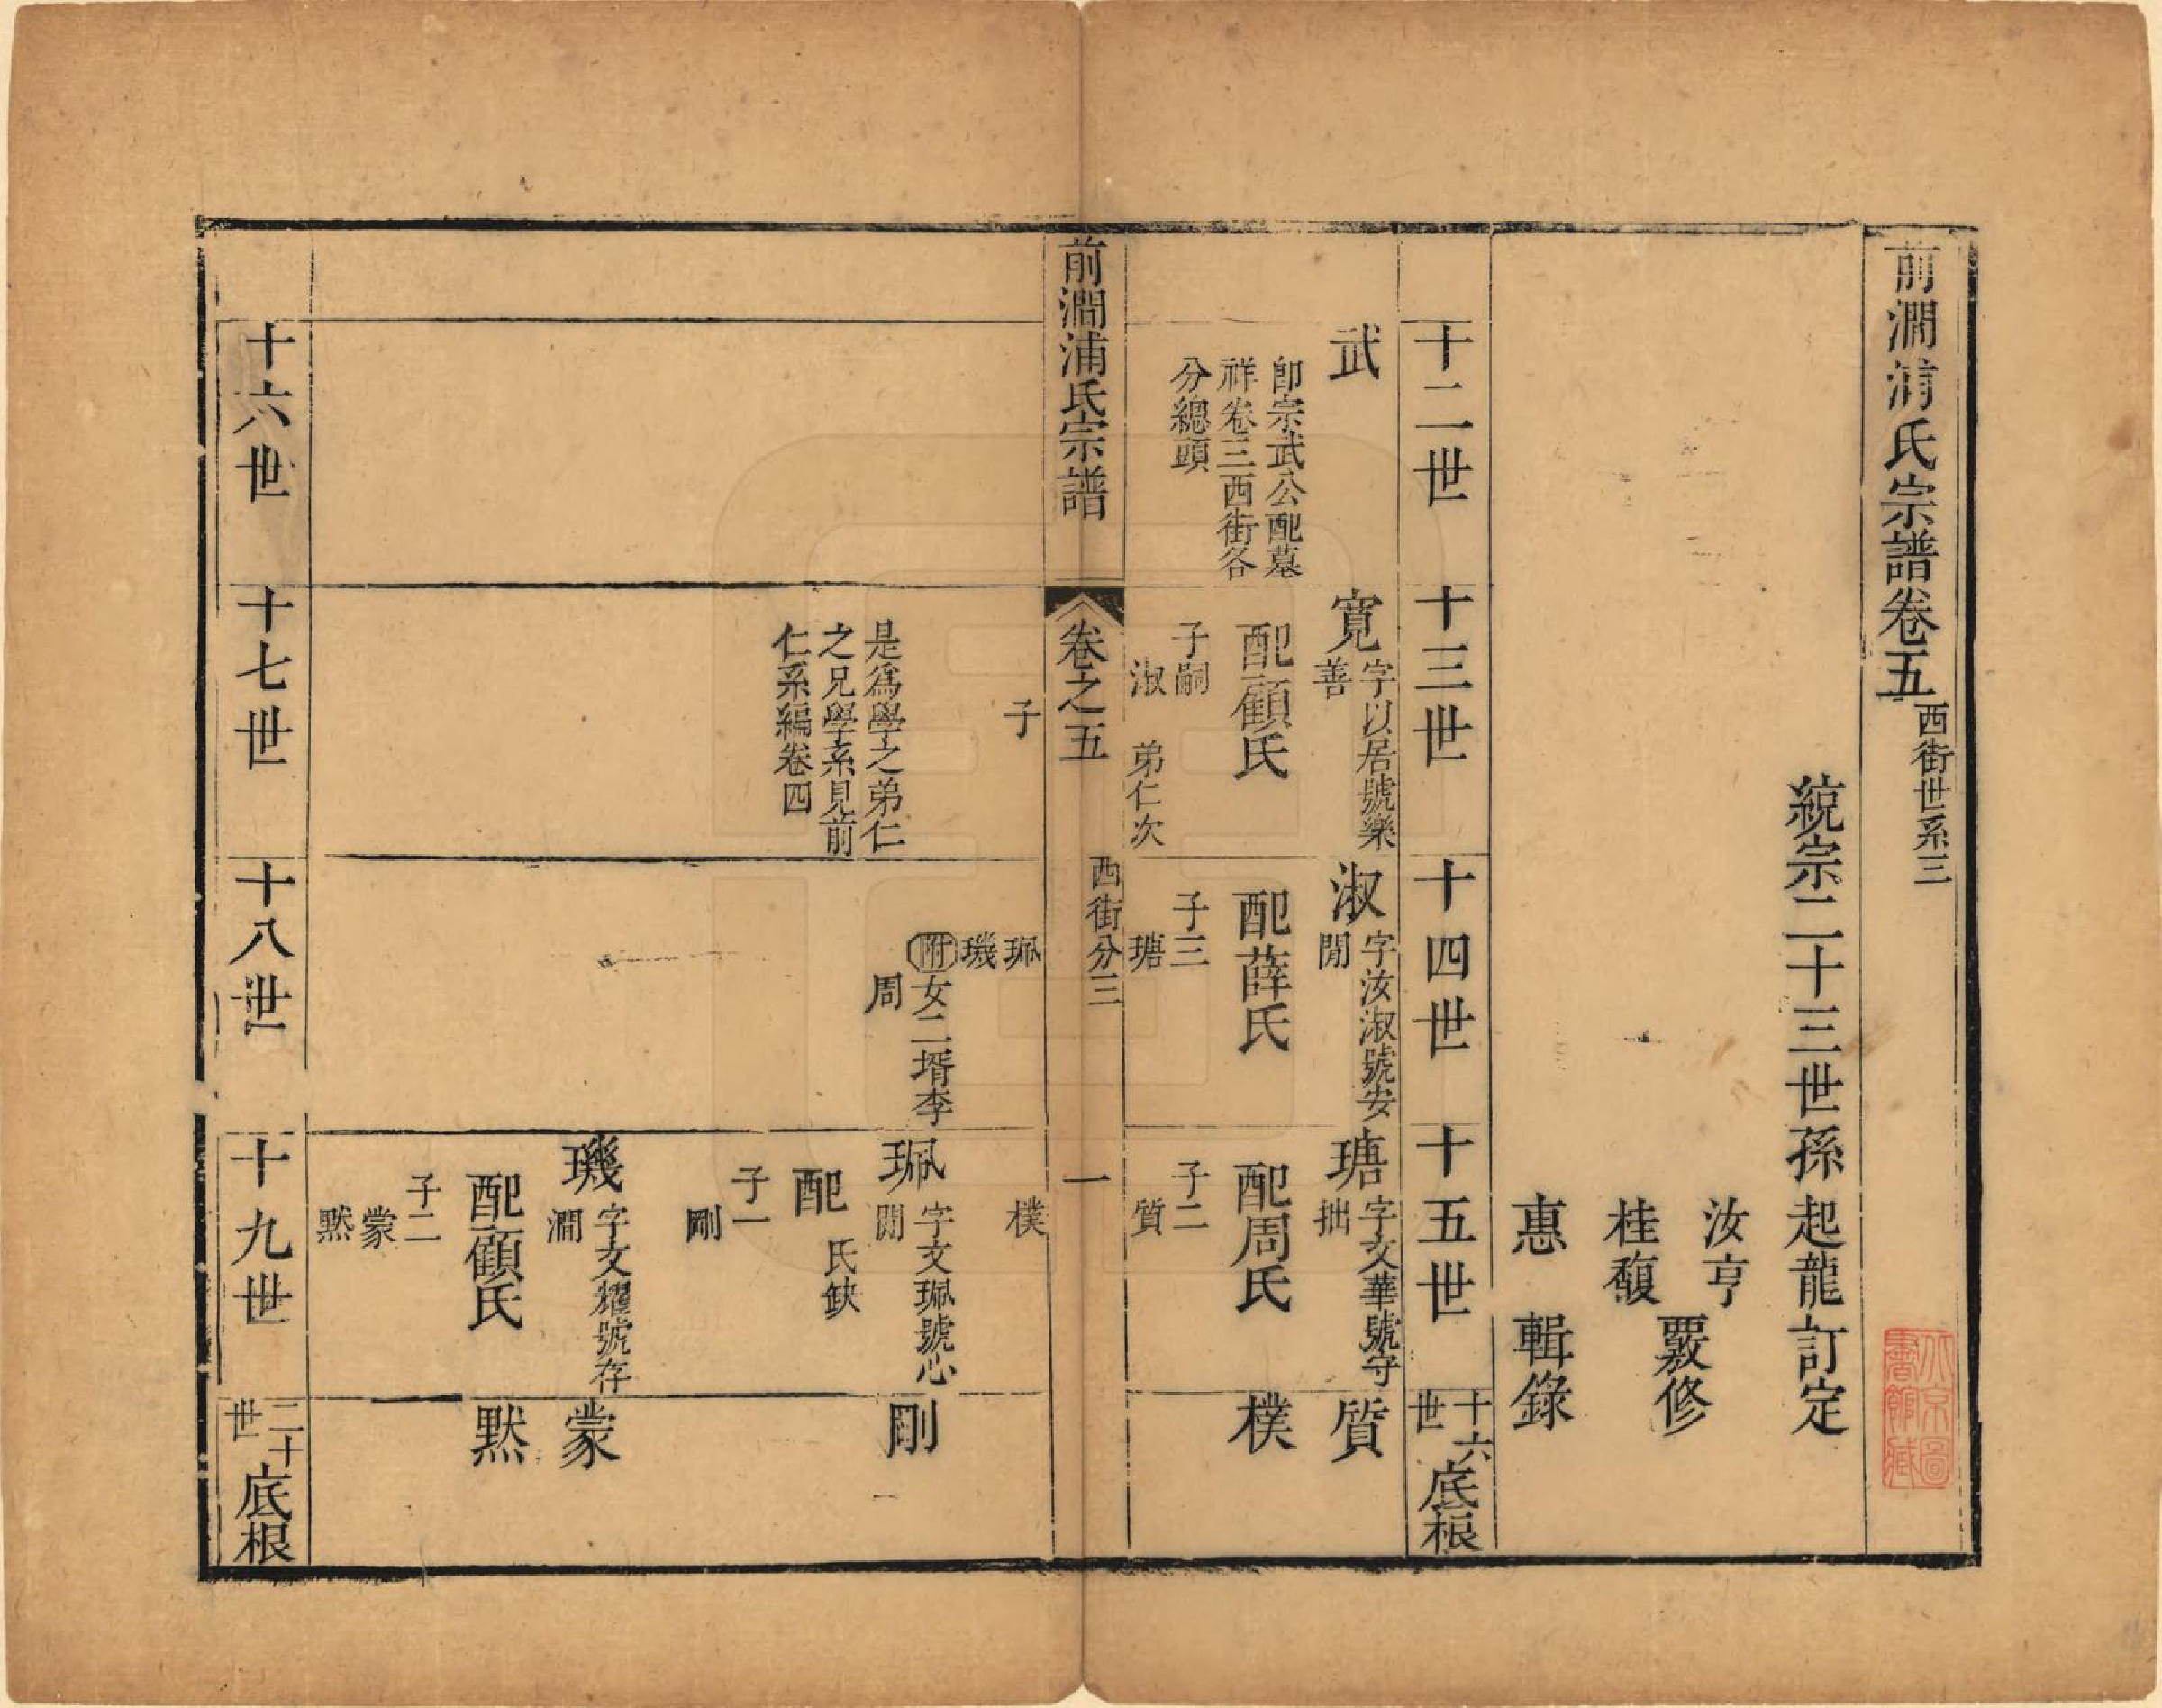 前澗浦氏宗譜卷五
西街世系三
統宗二十三世孫起龍訂定
汝亨
桂馥
覈修
惠
輯錄
十二世
十三世
十四世
十五世
十六
世
底根
武
即宗武公配墓
祥卷三西街各
分總頭
寬
字以居號樂
善
配顧氏
子嗣
淑
弟仁次
淑
字汝淑號安
閒
配薛氏
子三
瑭
瑭
字文華號守
拙
配周氏
子二
質
質
樸
前澗浦氏宗譜
卷之五
西街分三
一
子
是爲學之弟仁
之兄學系見前
仁系編卷四
珮
璣
附女二壻李
周
樸
珮
字文珮號心
閒
配
氏缺
子一
剛
璣
字文耀號存
澗
配顧氏
子二
蒙
黙
剛
蒙
黙
十六世
十七世
十八世
十九世
二十
世
底根
北京圖
書館藏